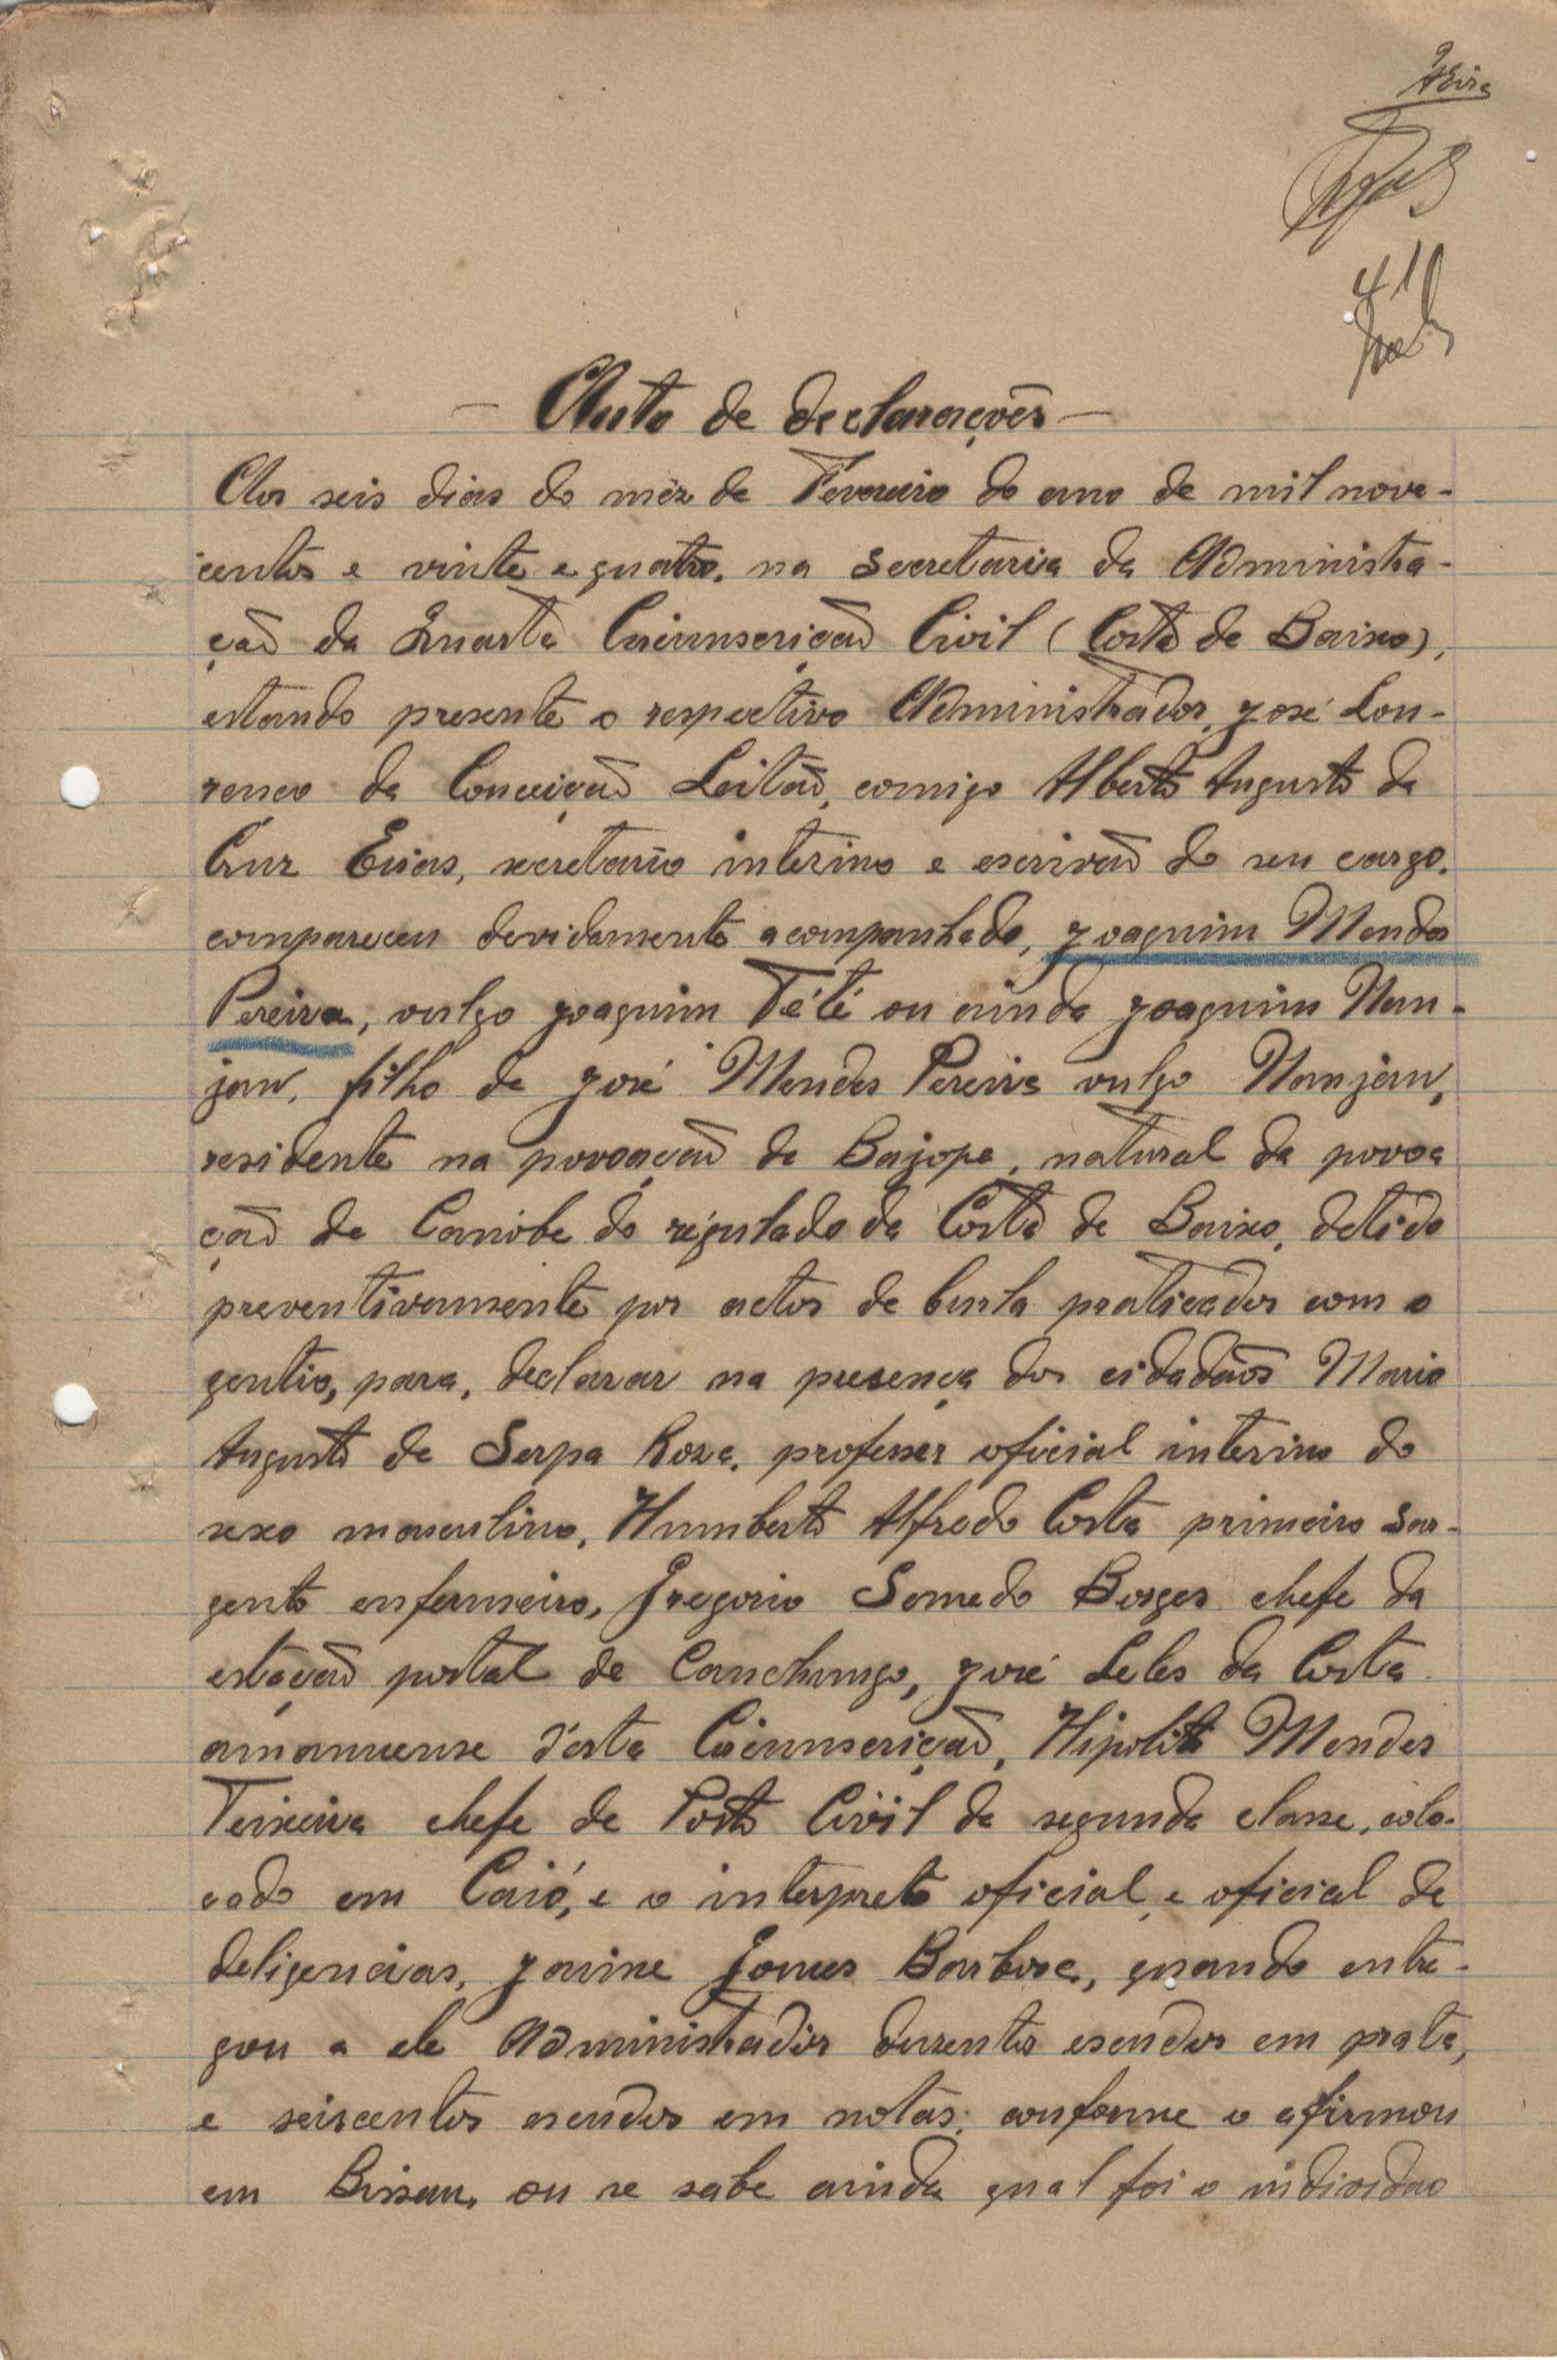 41
— Auto de declarações —
Aos seis dias do mêz de Fevereiro do ano de mil nove-
centos e vinte e quatro, na Secretaria da Administra-
ção da Quarta Circunscrição Civil (Costa de Baixo),
estando presente o respectivo Administrador, José Lou-
renço da Conceição Leitão, comigo Alberto Augusto da
Cruz Elias, secretario interino e escrivão do seu cargo.
compareceu devidamente acompanhado, Joaquim Mendes
Pereira, vulgo Joaquim Tété ou ainda Joaquim Nan-
jan, filho de José Mendes Pereira vulgo Nanjan,
residente na povoação de Bajope, natural da povoa
ção de Canobe do régulado da Costa de Baixo, detido
preventivamente por actos de burla praticados com o
gentio, para, declarar na presença dos cidadãos Mario
Augusto de Serpa Roza, professor oficial interino do
sexo masculino, Humberto Alfredo Costa primeiro sar-
gento enfermeiro, Gregorio Semedo Borges chefe da
estação postal de Canchungo, José Leles da Costa
amanuense d'esta Circunscrição, Hipolito Mendes
Teixeira chefe de Posto Civil de segunda classe, colo-
cado em Caió, e o interprete oficial e oficial de
deligencias, Jaime Gomes Barbosa, quando entre-
gou a ele Administrador duzentos escudos em prata,
e seiscentos escudos em notas, conforme o afirmou
em Bissau, ou se sabe ainda qual foi o individuo